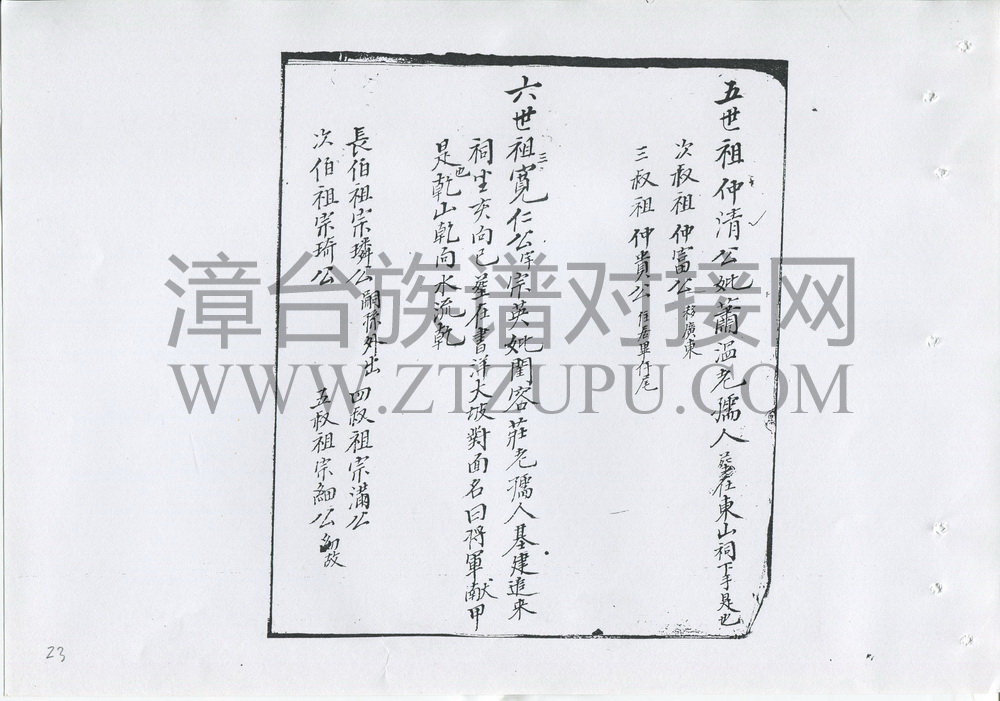 五世祖仲清公妣蕭溫老孺人葬在東山祠下手是也
次叔祖仲富公移廣東
三叔祖仲貴公
六世祖寬仁公諱宗英妣閨容莊老孺人基建追來
三
祠坐亥向巳葬在書洋大坡對面名曰将軍献甲
是乾山乾向水流乾
也
長伯祖宗璘公嗣孫外出 四叔祖宗滿公
次伯祖宗琦公 五叔祖宗細公幼故
漳台族谱对接网
WWW.ZTZUPU.COM
23